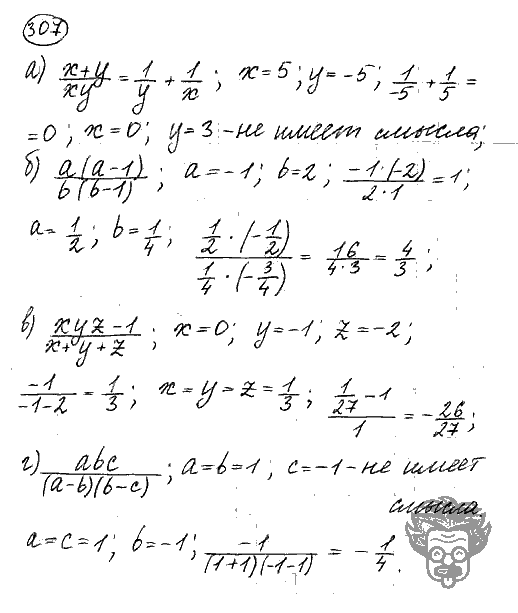 307
а) (x+y)/(xy) = 1/y + 1/x ; x=5; y=-5; 1/-5 + 1/5 =
=0; x=0; y=3 - не имеет смысла;
б) a(a-1)/b(b-1) ; a=-1; b=2; -1·(-2)/2·1 = 1;
a=1/2; b=1/4; (1/2·(-1/2))/(1/4·(-3/4)) = 16/4·3 = 4/3;
в) (xyz-1)/(x+y+z) ; x=0; y=-1; z=-2;
-1/-1-2 = 1/3; x=y=z=1/3; (1/27-1)/1 = -26/27;
г) abc/(a-b)(b-c) ; a=b=1, c=-1 - не имеет
смысла.
a=c=1; b=-1; -1/(1+1)(-1-1) = -1/4.